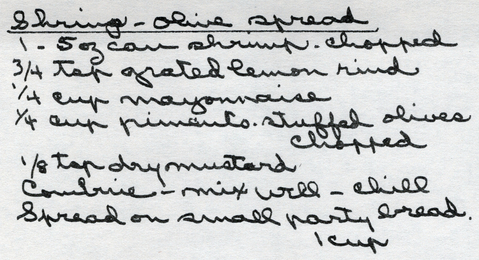 Shrimp - olive spread
1 - 5 oz can shrimp. chopped
3/4 tsp grated lemon rind
1/4 cup mayonnaise
1/4 cup pimento-stuffed olives
chopped
1/8 tsp dry mustard
Combine - mix well - chill
Spread on small party bread.
1 cup